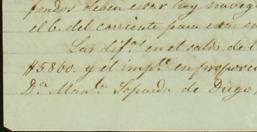 fondos deben estar hoy navega
el 6. del corriente para ese
Las dif.s en el saldo de l
#5860. y el imp.te en proporci
D.a Man.la Sepeda de Diego,